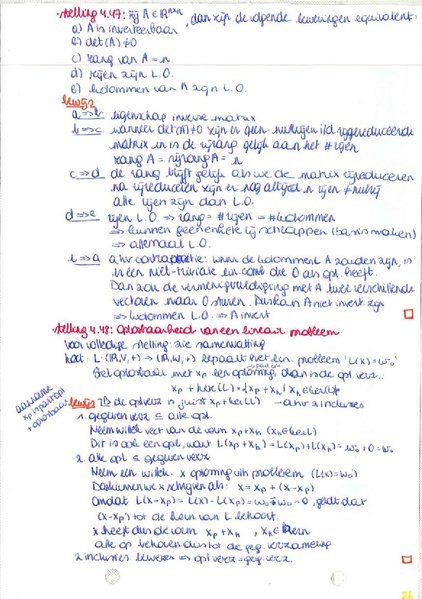 Stelling 4.47: zij A ∈ ℝⁿˣⁿ, dan zijn de volgende beweringen equivalent:
a) A is inverteerbaar
b) det(A) ≠ 0
c) rang van A = n
d) rijen zijn L.O.
e) kolommen van A zijn L.O.
bewijs
a ⇒ b eigenschap inverse matrix
b ⇒ c wanneer det(A) ≠ 0 zijn er geen nulrijen i/d rijgereduceerde
matrix en is de rijrang gelijk aan het # rijen
rang A = rijrang A = n
c ⇒ d de rang blijft gelijk als we de matrix rijreduceren
na rijreduceren zijn er nog altijd n rijen ≠ nulrij
alle rijen zijn dan L.O.
d ⇒ e rijen L.O. ⇒ rang = # rijen = # kolommen
⇒ kunnen geen enkele rij schrappen (basis maken)
⇒ allemaal L.O.
a.h.v. contrapositie: wanneer de kolommen A zouden zijn, is
er een niet-triviale lin. comb. die 0 als opl. heeft.
Dan zou de vermenigvuldiging met A twee verschillende
vectoren naar 0 sturen. Dus kan A niet invert. zijn
⇒ kolommen L.O. ⇒ A invert
Stelling 4.48: Oplosbaarheid van een lineair probleem
voor volledige stelling: zie samenvatting
kort: L: (ℝ,V,+) → (ℝ,W,+) bepaalt het lin. probleem 'L(x) = w₀'
Stel oplosbaar met xₚ een oplossing, dan is de opl. verz.:
xₚ + ker(L) = {xₚ + xₖ | xₖ ∈ ker(L)}
aanname
xₚ is part opl
+ oplosbaar
bewijs Is de opl. verz. is juist xₚ + ker(L) → a.h.v. 2 inclusies
1. gegeven verz ⊆ alle opl.
Neem willek. vect van de vorm xₚ + xₖ (xₖ ∈ ker L)
Dit is ook een opl, want L(xₚ + xₖ) = L(xₚ) + L(xₖ) = w₀ + 0 = w₀
2. alle opl ⊆ gegeven verz
Neem een willek. x oplossing v/h probleem (L(x) = w₀)
Dan kunnen we x schrijven als: x = xₚ + (x - xₚ)
Omdat L(x - xₚ) = L(x) - L(xₚ) = w₀ - w₀ = 0, geldt dat
(x - xₚ) tot de kern van L behoort.
x heeft dus de vorm xₚ + xₖ , xₖ ∈ kern
alle opl. behoren dus tot de geg. verzameling
2 inclusies bewezen ⇒ opl verz = geg. verz.
26